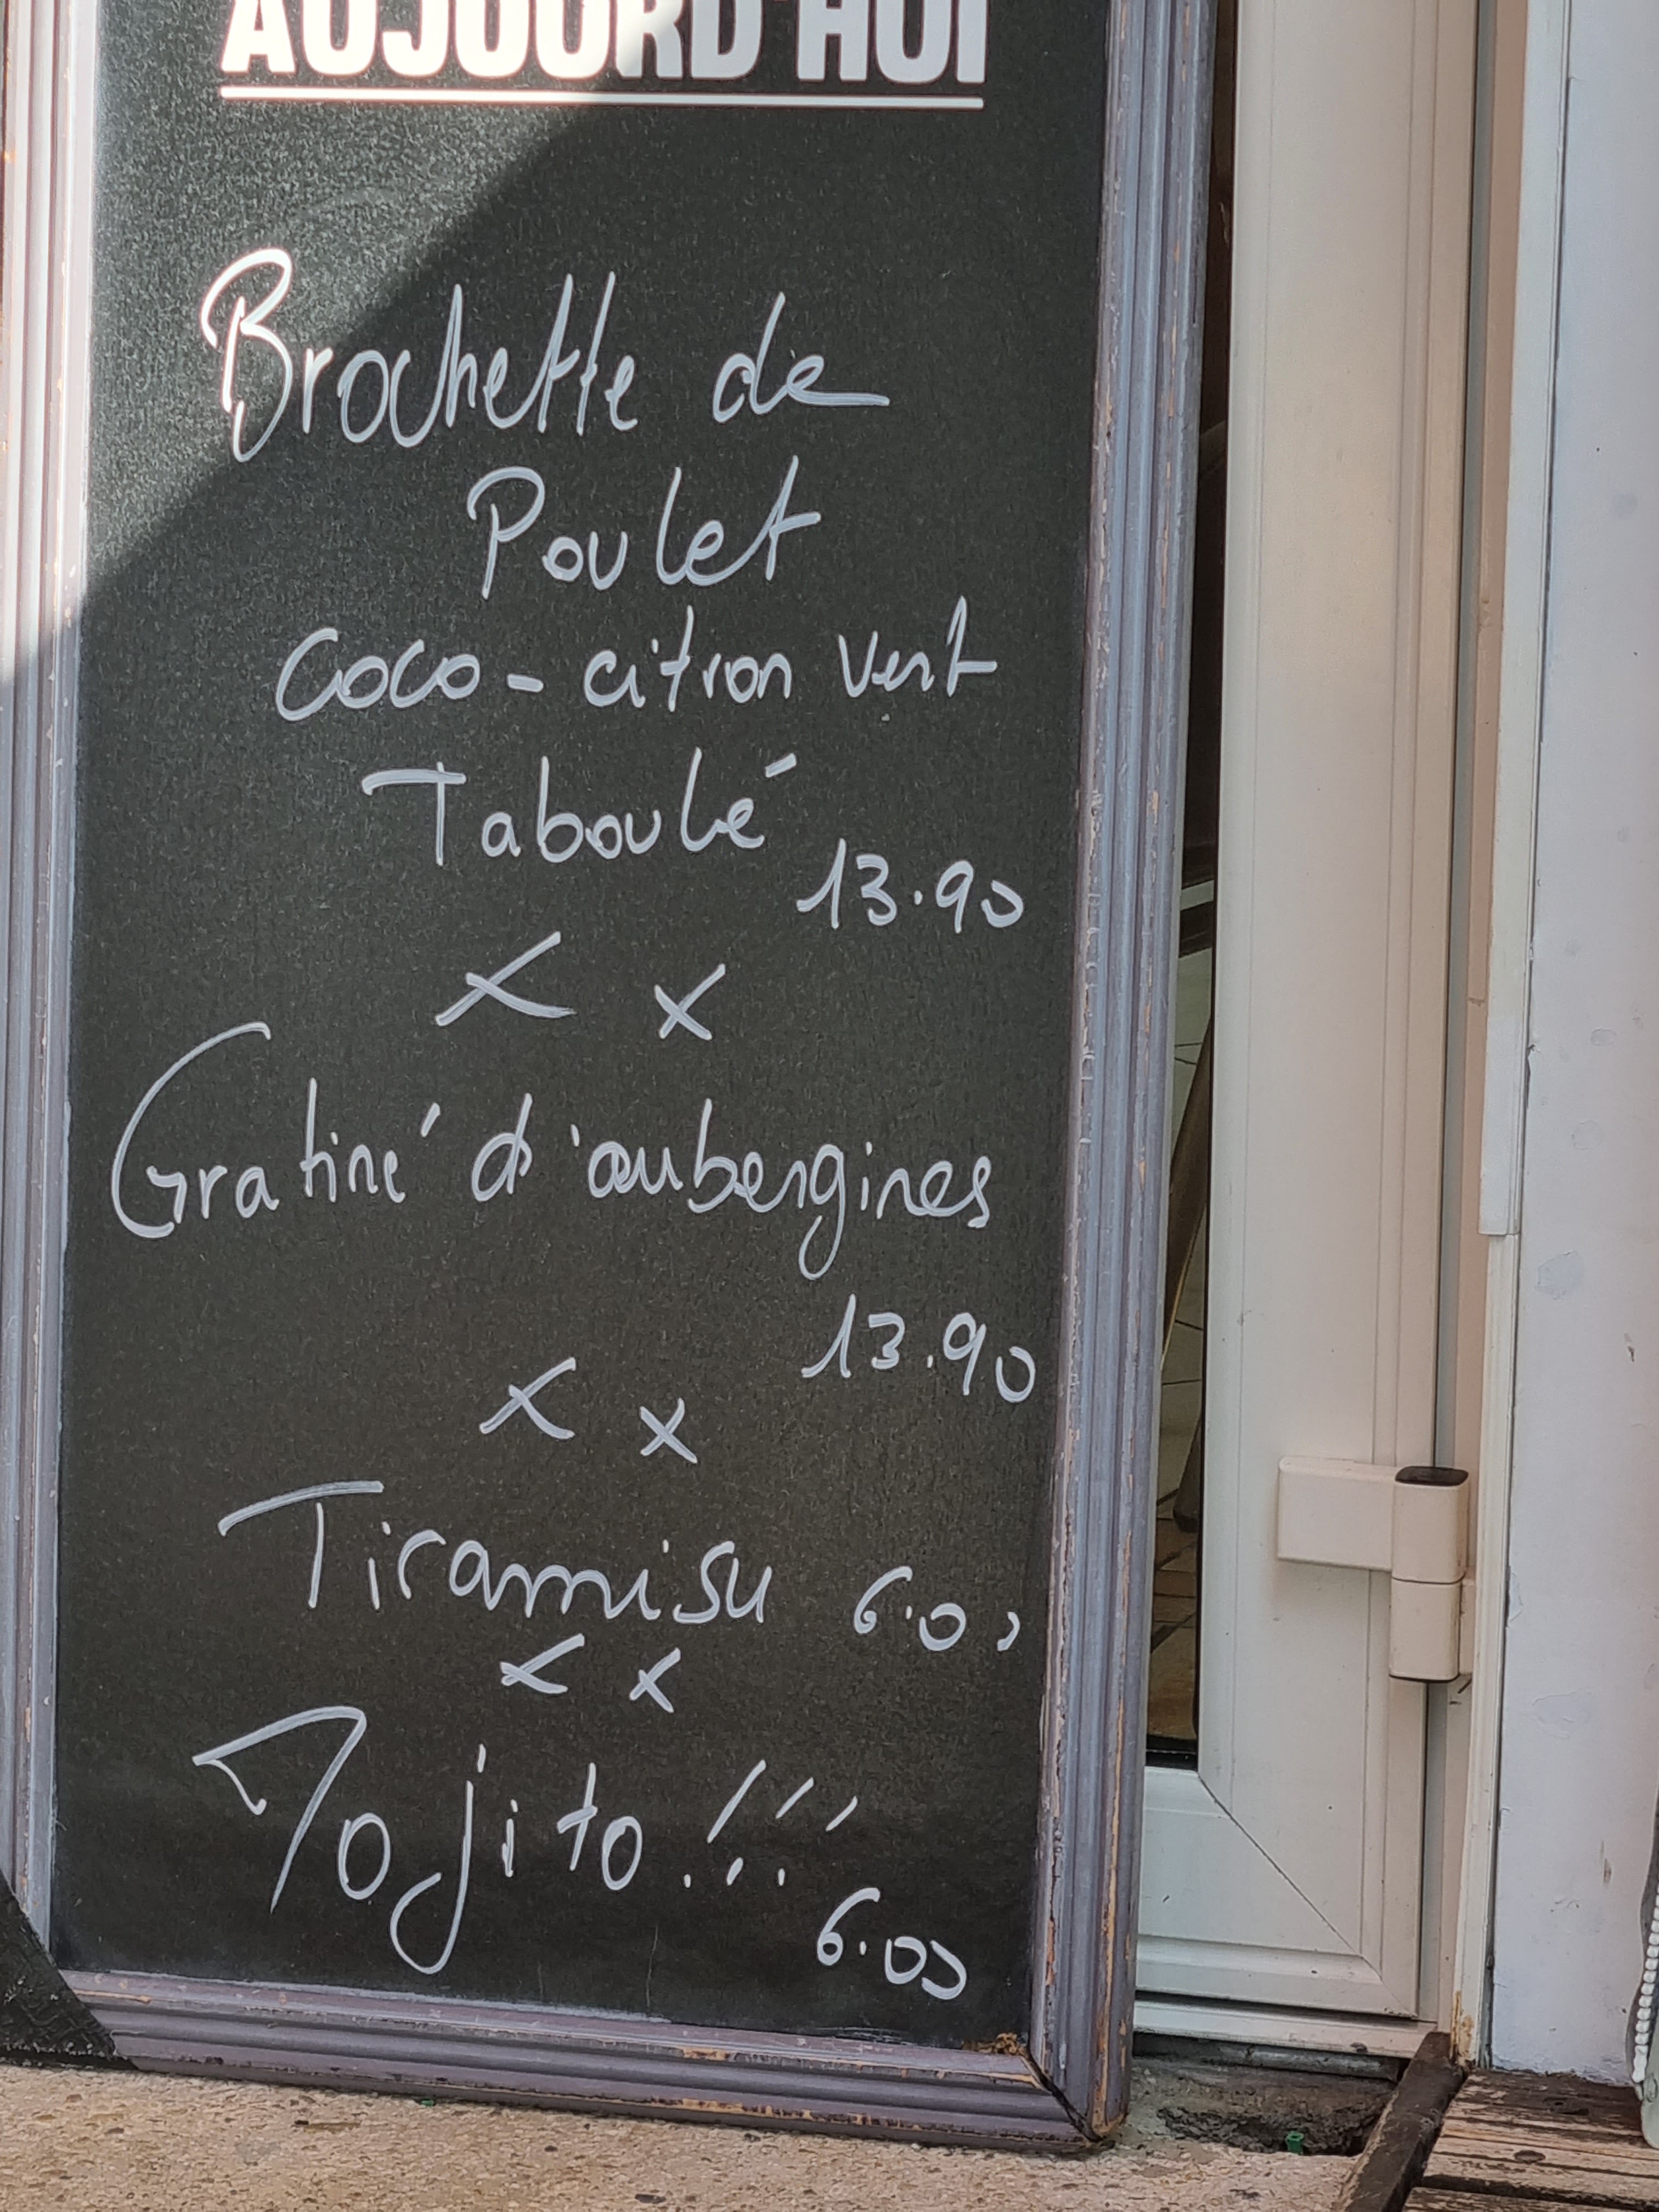 AUJOURD'HUI
Brochette de
Poulet
Coco - citron vert
Taboulé
13.90
x x
Gratiné d'aubergines
13.90
x x
Tiramisu 6.00
x x
Mojito!!!
6.00